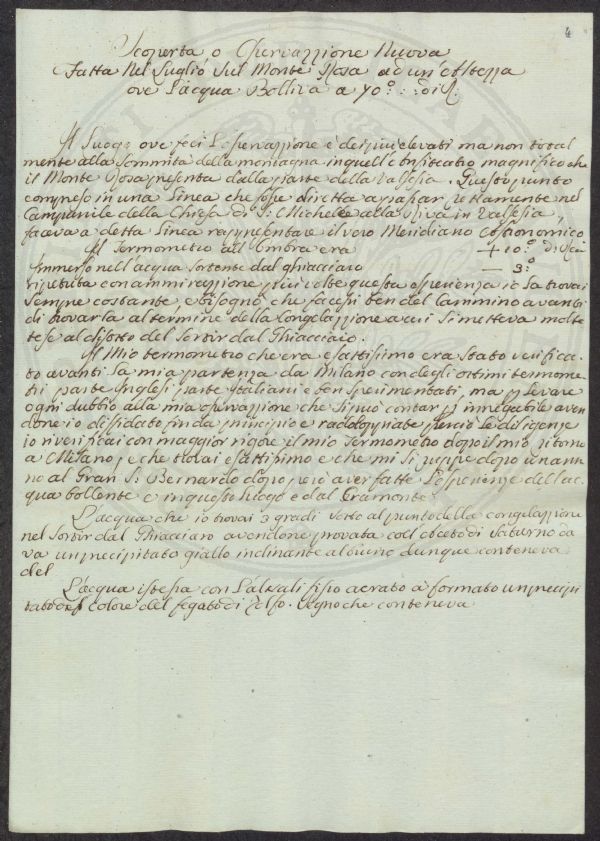 4
Scoperta o Osservazzione Nuova
Fatta Nel Luglio Sul Monte Rosa ad un'Altezza
ove L'acqua Bolliva a 70° :: di R.
Il Luogo ove feci L'osservazzione è dei piu elevati ma non total
mente alla Sommità della montagna in quell'Anfiteatro magnifico che
il Monte Rosa presenta dalla parte della Valsesia. Questo punto
compreso in una Linea che fosse diretta a passar rettamente nel
Campanile della Chiesa di S: Michele alla Riva in Valsesia,
faceva a detta Linea rappresentare il vero Meridiano Astronomico
Il Termometro all'Ombra era + 10° di
Immerso nell'acqua sortente dal ghiacciaro — 3°
ripetuta con ammirazzione piu volte questa esperienza io la trovai
sempre costante, e bisognò che facessi ben del Cammino avanti
di trovarla al termine della Congelazzione a cui si metteva molte
tese al disotto del Sortir dal Ghiacciaio.
Il Mio termometro che era esattissimo era stato verifica
to avanti la mia partenza da Milano con degli ottimi termome
tri parte Inglesi parte Italiani e ben sperimentati, ma p levare
ogni dubbio alla mia osservazzione che si può contar p innegabile aven
done io diffidato fin da principio e raddoppiate perciò le diligenze
io riverificai con maggior rigore il mio Termometro dopo il mio ritorno
a Milano, e che trovai esattissimo e che mi si ruppe dopo un an
no al Gran S: Bernardo dopo però aver fatte L'esperienze dell'ac
qua bollente e in questo luogo e dal Cramonte.
L'acqua che io trovai 3 gradi sotto al punto della congelazzione
nel Sortir dal Ghiacciaro avendone provata coll'aceto di Saturno da
va un precipitato giallo inclinante al bruno dunque conteneva
del
L'acqua istessa con L'alcali fisso aerato à formato un precipi
tato del colore del fegato di Zolfo. Segno che conteneva